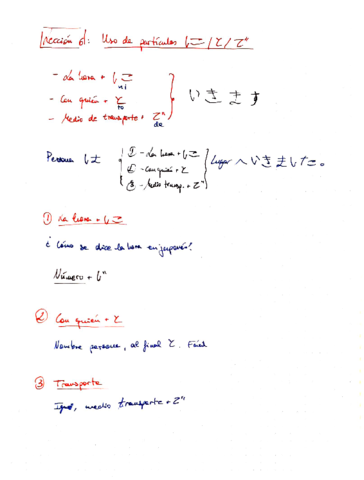 Lección 6: Uso de partículas に/と/で
- La hora + に
ni
- Con quién + と
to
- Medio de transporte + で
de
いきます
Persona は
① - La hora + に
② - Con quién + と
③ - Medio transp. + で
Lugar へ いきました。
① La hora + に
¿Cómo se dice la hora en japonés?
Número + じ
② Con quién + と
Nombre persona, al final と. Fácil
③ Transporte
Igual, medio transporte + で